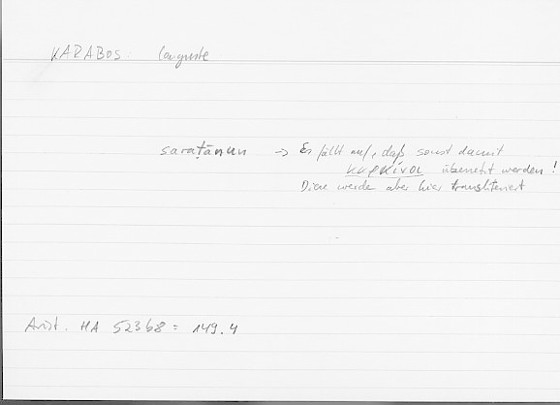 KARABOS: langouste
saraṭānun → Es fällt auf, daß sonst damit
καρκίνοι übersetzt werden!
Diese werden aber hier transliteriert
Arist. HA 523b8 = 149.4